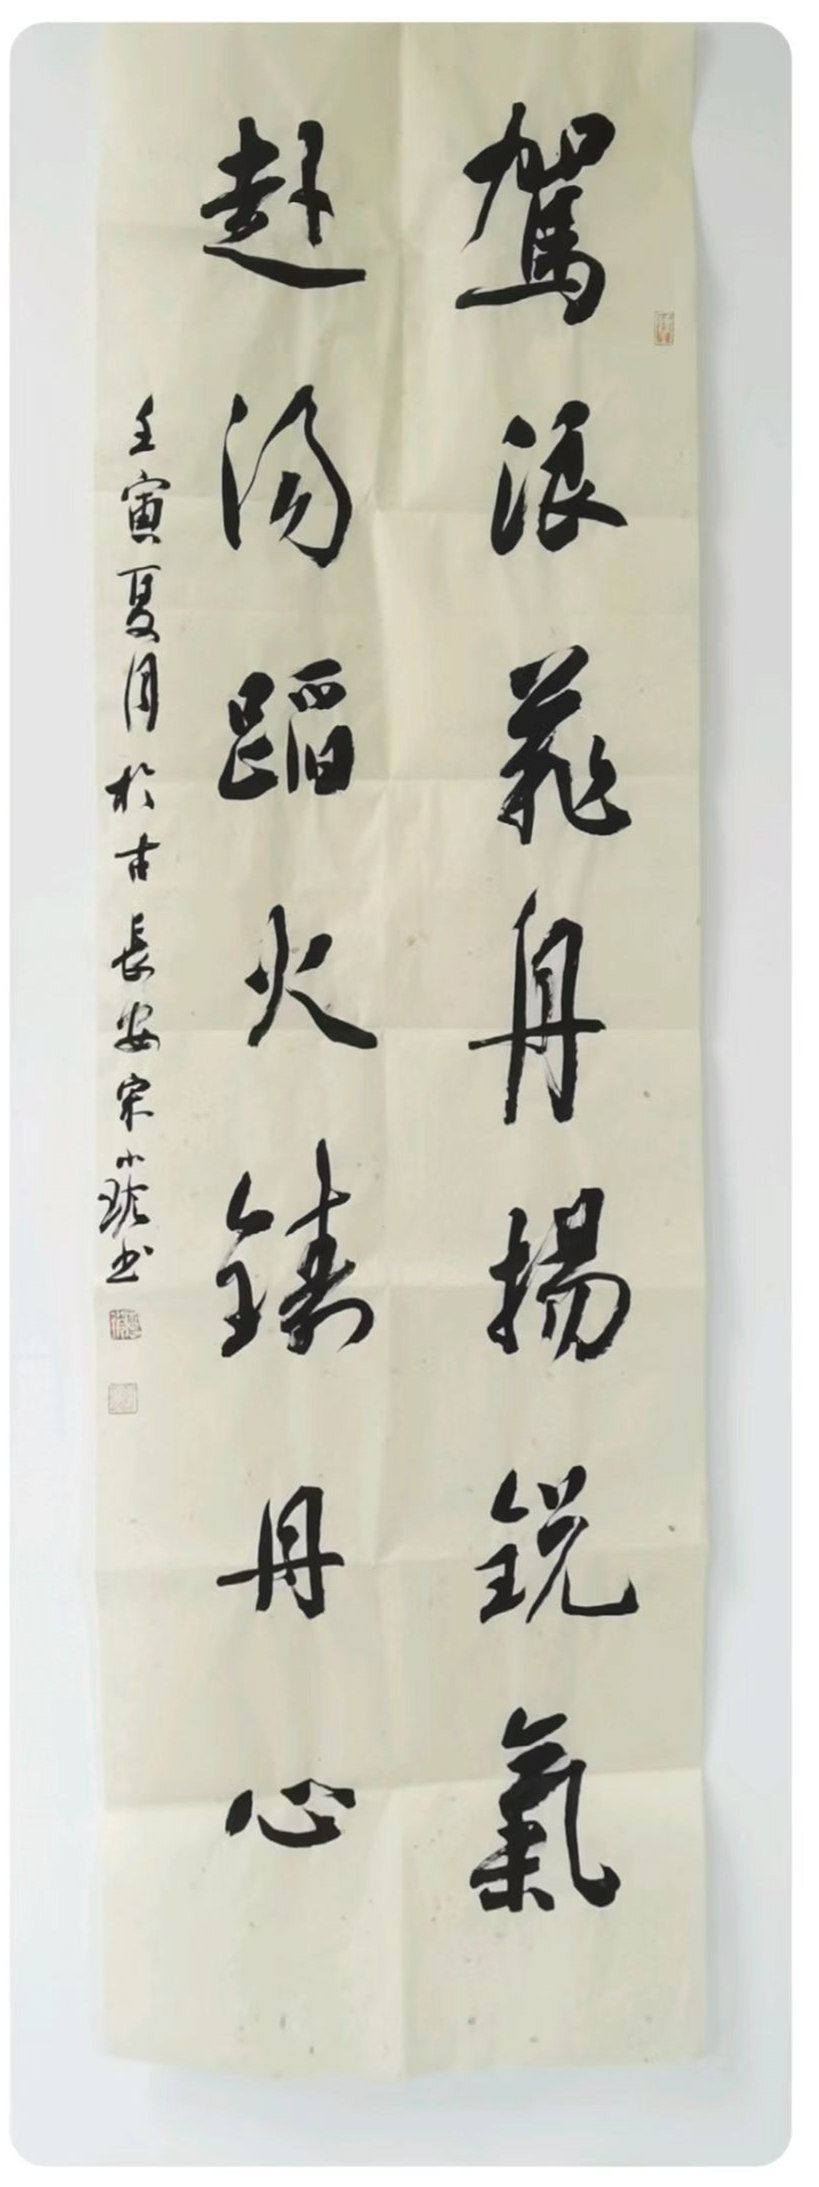 駕浪飛舟揚銳氣
赴湯蹈火鑄丹心
壬寅夏月於古長安宋小琀书